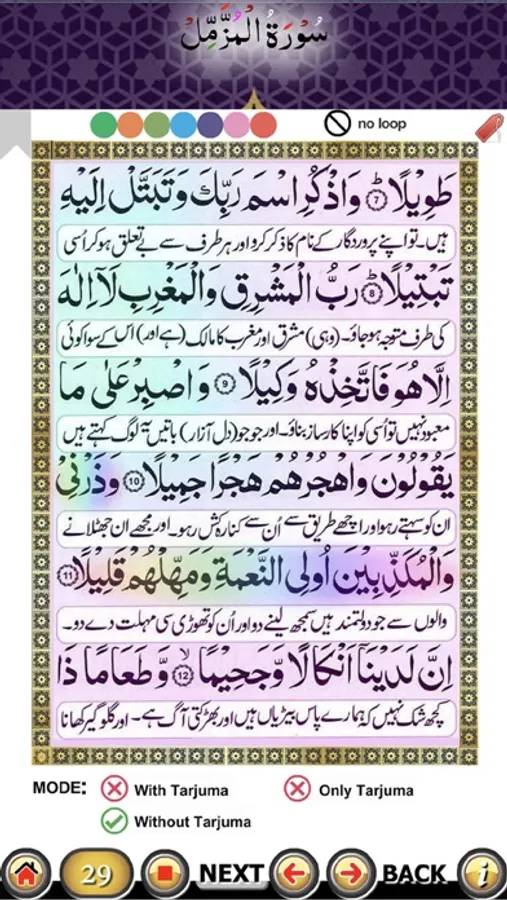 سُوْرَةُ الْمُزَّمِّلِ
no loop
طَوِيْلًا ۷ وَاذْكُرِ اسْمَ رَبِّكَ وَتَبَتَّلْ اِلَيْهِ
ہیں۔ تو اپنے پروردگار کے نام کا ذکر کرو اور ہر طرف سے بے تعلق ہو کر اُسی
تَبْتِيْلًا ۸ رَبُّ الْمَشْرِقِ وَالْمَغْرِبِ لَاۤ اِلٰهَ
کی طرف متوجہ ہوجاؤ۔ (وہی) مشرق اور مغرب کا مالک (ہے اور) اس کے سوا کوئی
اِلَّا هُوَ فَاتَّخِذْهُ وَكِيْلًا ۹ وَاصْبِرْ عَلٰى مَا
معبود نہیں تو اُسی کو اپنا کارساز بناؤ۔ اور جو جو (دل آزار) باتیں یہ لوگ کہتے ہیں
يَقُوْلُوْنَ وَاهْجُرْهُمْ هَجْرًا جَمِيْلًا ۱۰ وَذَرْنِيْ
ان کو سہتے رہو اور اچھے طریق سے اُن سے کنارہ کش رہو۔ اور مجھے ان جھٹلانے
وَالْمُكَذِّبِيْنَ اُولِى النَّعْمَةِ وَمَهِّلْهُمْ قَلِيْلًا ۱۱
والوں سے جو دولتمند ہیں سمجھ لینے دو اور اُن کو تھوڑی سی مہلت دے دو۔
اِنَّ لَدَيْنَاۤ اَنْكَالًا وَّجَحِيْمًا ۱۲ وَّطَعَامًا ذَا
کچھ شک نہیں کہ ہمارے پاس بیڑیاں ہیں اور بھڑکتی آگ ہے۔ اور گلوگیر کھانا
MODE: With Tarjuma Only Tarjuma
Without Tarjuma
29 NEXT BACK i